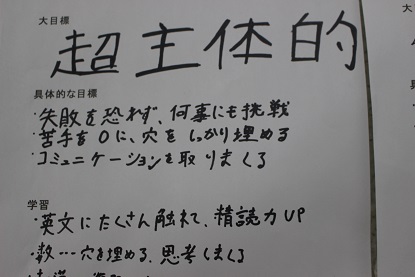 大目標
超主体的
具体的な目標
・失敗を恐れず、何事にも挑戦
・苦手を0に、穴をしっかり埋める
・コミュニケーションを取りまくる
学習
・英文にたくさん触れて、精読力UP
・数…穴を埋める、思考しまくる
大